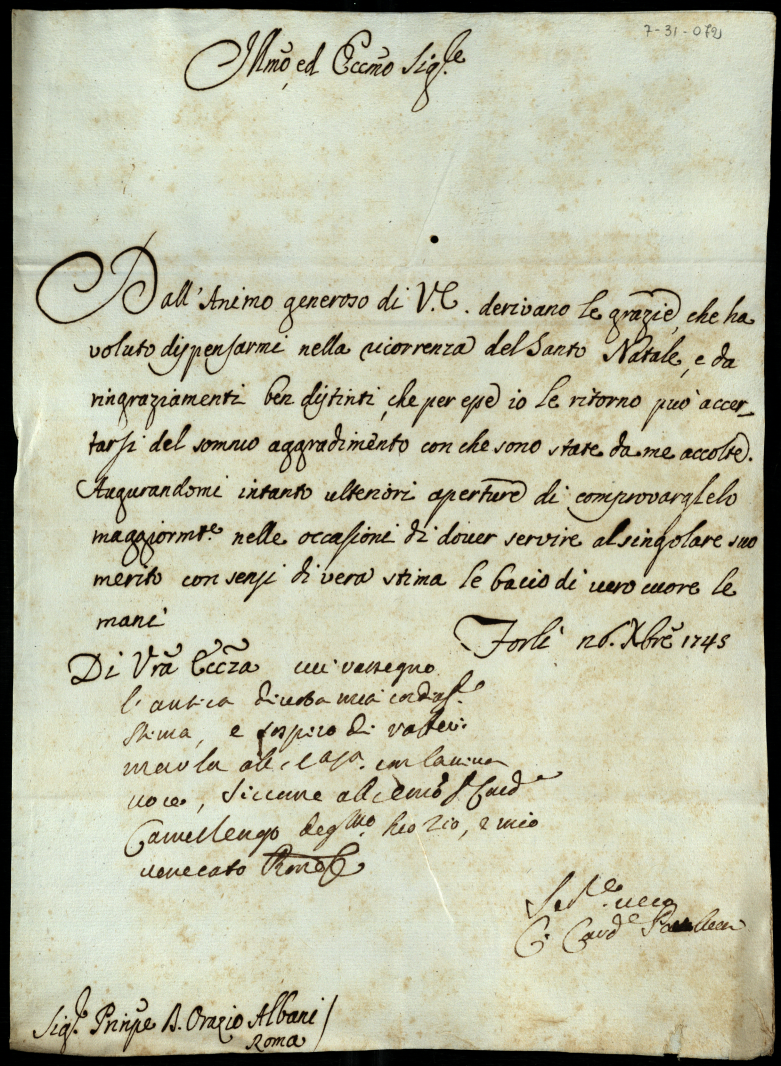 7-31-072
Illmo, ed Eccmo Sigre
Dall'Animo generoso di V.E. derivano le grazie, che ha
voluto dispensarmi nella ricorrenza del Santo Natale, e da
ringraziamenti ben distinti, che per esse io le ritorno può accer-
tarsi del sommo aggradimento con che sono state da me accolte.
Augurandomi intanto ulteriori aperture di comprovarglelo
maggiormte nelle occasioni di dover servire al singolare suo
merito con sensi di vera stima le bacio di vero cuore le
mani
Forlì 26. Xbre 1745
Di Vra Eccza cui rassegno
l'antica divota mia
stima, e sospiro di
alla con la viva
voce, siccome Card
Camellengo degmo suo Zio, e mio
venerato Prone
Se re vero
C. Carde
Sigr Prinpe D. Orazio Albani /
Roma